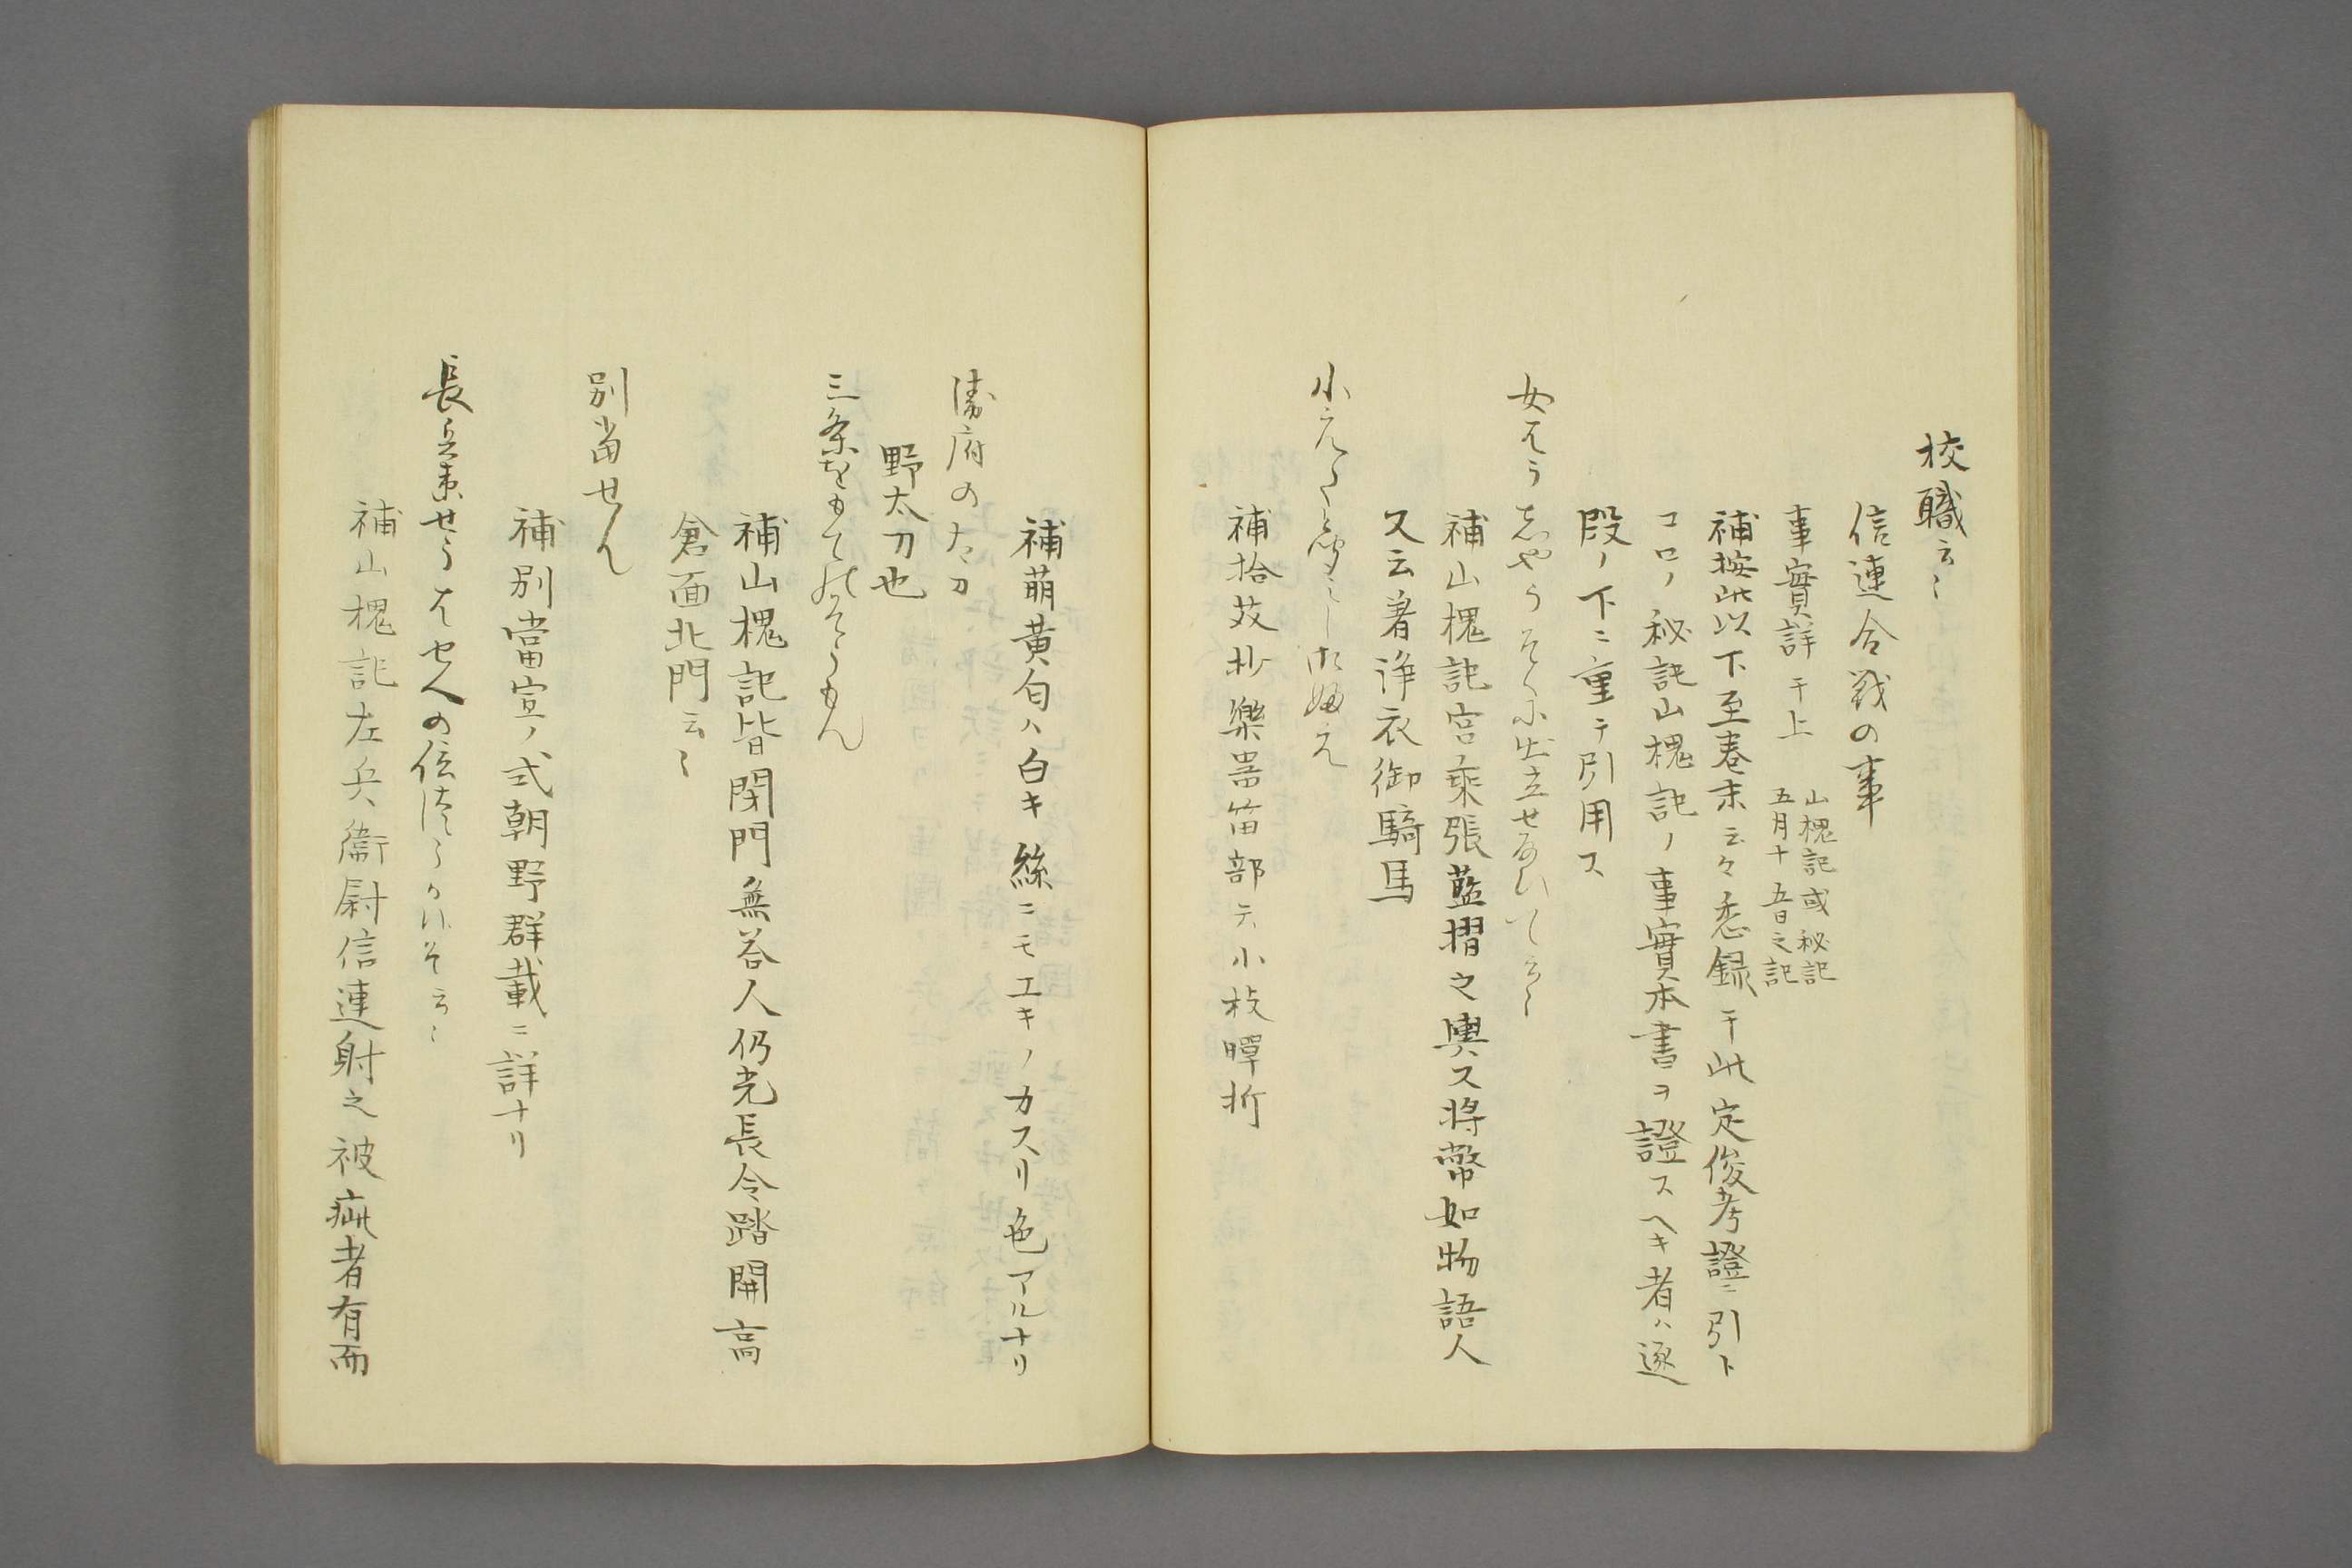 校職云〻
信連合戦の事
事實詳于上
山槐記或秘記
五月十五日之記
補按此以下至巻末云々悉録于此定俊考證ニ引ト
コロノ秘記山槐記ノ事實本書ヲ證スヘキ者ハ逐
段ノ下ニ重テ引用ス
女はうしやうそくに出立せ給ひて云〻
補山槐記宮乗張藍摺之輿又将幣如物語人
又云着浄衣御騎馬
小えたときこえし御笛を
補拾芥抄樂器笛部云小枝暉折
補萌黄匂ハ白キ絲ニモエキノカスリ色アルナリ
衛府の太刀
野太刀也
三条をもての惣もん
補山槐記皆閉門無答人仍光長令踏開高
倉面北門云〻
別当せん
補別當宣ノ式朝野群載ニ詳ナリ
長兵衛せうはせへの信つらかいそ云〻
補山槐記左兵衛尉信連射之被疵者有両